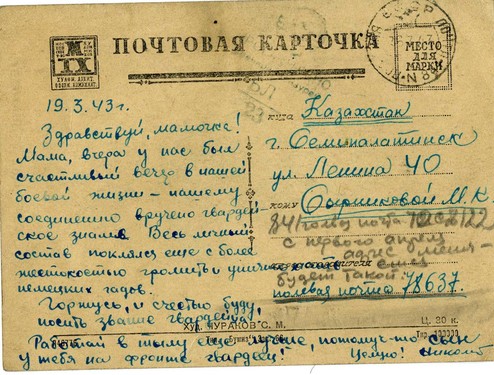 МТХ
ПОЧТОВАЯ КАРТОЧКА
МЕСТО
ДЛЯ
МАРКИ
19.3.43г.
Здравствуй, мамочка!
Мама, вчера у нас был
счастливый вечер в нашей
боевой жизни – нашему
соединению вручено гвардей-
ское знамя. Весь личный
состав поклялся еще с более
жестокостью громить и
немецких гадов.
Горжусь, и с честью буду
носить звание гвардейца,
Работай в тылу еще лучше, потому-что сын
у тебя на фронте гвардеец! Целую!
куда
Казахстан
г. Семипалатинск
ул. Ленина 40
кому
Сырниковой М. К.
почта
с первого
адрес
будет такой:
полевая почта 78637.
Худ. ЧУРАКОВ С. М.
Ц. 20 к.